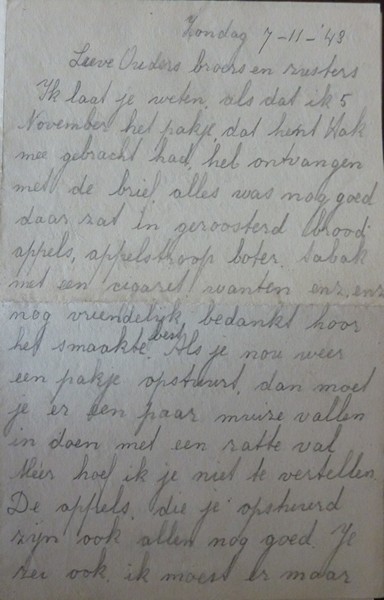 Zondag 7-11-'43
Leeve Ouders broers en zusters
Ik laat je weten, als dat ik 5
November het pakje, dat hent Hak
mee gebracht had, heb ontvangen
met de brief alles was nog goed
daar zat in geroosterd brood
appels, appelstroop boter. tabak
met een cegaret wanten enz, enz
nog vriendelijk bedankt hoor
het smaakte best. Als je nou weer
een pakje opstuurt, dan moet
je er een paar muize vallen
in doen met een ratte val
Meer hoef ik je niet te vertellen.
De appels, die je opstuurd
zijn ook allen nog goed. Je
zei ook, ik moest er maar